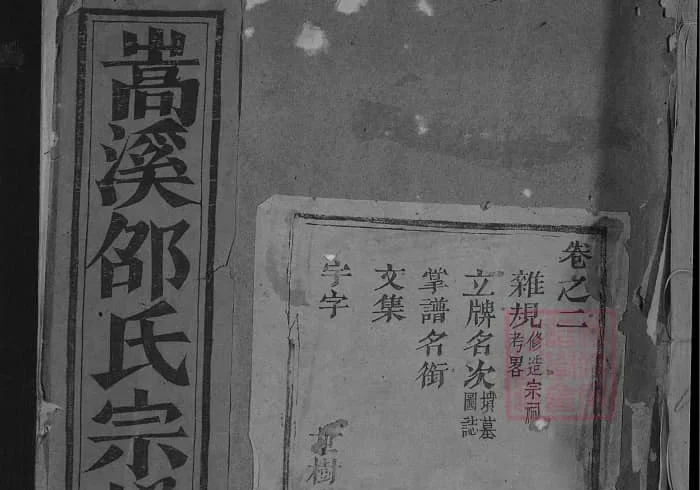 嵩溪邵氏宗
卷之二
雜規修造宗祠考畧
立牌名次墳墓圖誌
掌譜名銜
文集
字字
樹